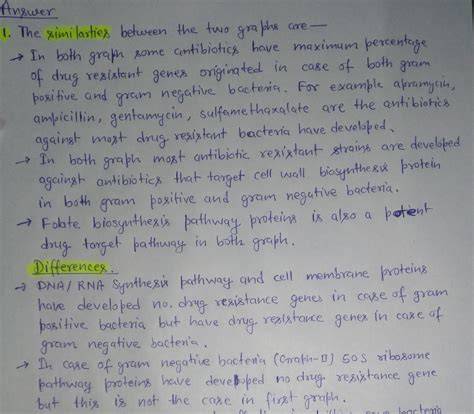 Answer
1. The similarties between the two graphs are —
→ In both graph some antibiotics have maximum percentage
of drug resistant genes originated in case of both gram
positive and gram negative bacteria. For example apramycin,
ampicillin, gentamycin, sulfamethaxalate are the antibiotics
against most drug resistant bacteria have developed.
→ In both graph most antibiotic resistant strains are developed
against antibiotics that target cell wall biosynthesis protein
in both gram positive and gram negative bacteria.
→ Folate biosynthesis pathway proteins is also a potent
drug target pathway in both graph.
Differences.
→ DNA/RNA synthesis pathway and cell membrane proteins
have developed no. drug resistance genes in case of gram
positive bacteria but have drug resistance genes in case of
gram negative bacteria.
→ In case of gram negative bacteria (Graph-II) 50S ribosome
pathway proteins have developed no drug resistance gene
but this is not the case in first graph.